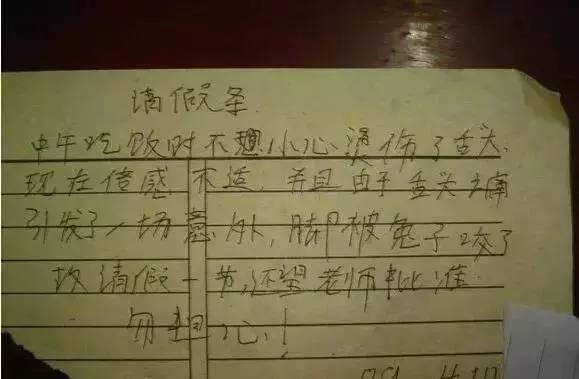 请假条
中午吃饭时不想小心烫伤了舌头,
现在倍感不适,并且由于舌头之痛
引发了一场意外,脚被兔子咬了
故请假一节,还望老师批准
勿担心!